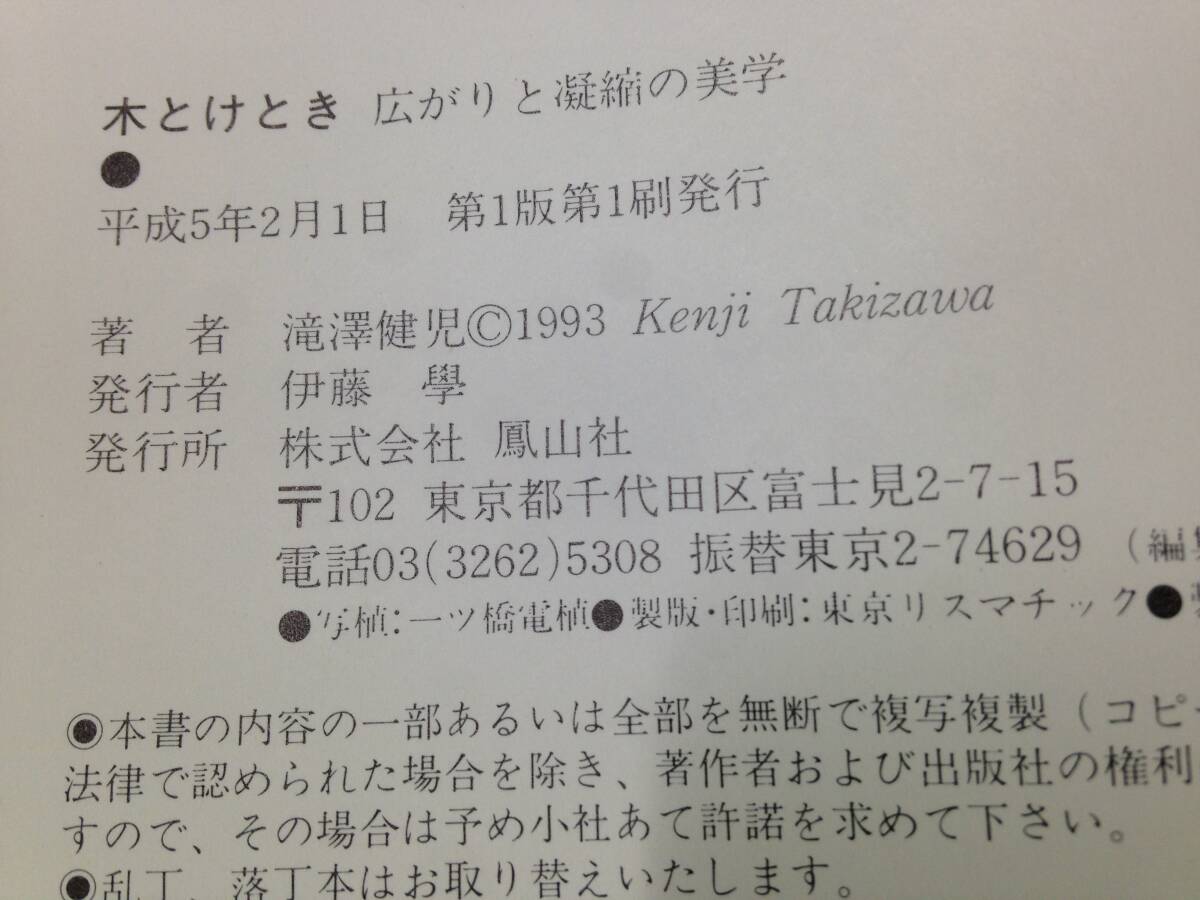 木とけとき 広がりと凝縮の美学
●
平成5年2月1日 第1版第1刷発行
著 者 滝澤健児©1993 Kenji Takizawa
発行者 伊藤 學
発行所 株式会社 鳳山社
〒102 東京都千代田区富士見2-7-15
電話03(3262)5308 振替東京2-74629 (編
●写植:一ツ橋電植●製版・印刷:東京リスマチック●
◉本書の内容の一部あるいは全部を無断で複写複製(コピ
法律で認められた場合を除き、著作者および出版社の権利
すので、その場合は予め小社あて許諾を求めて下さい。
◉乱丁、落丁本はお取り替えいたします。